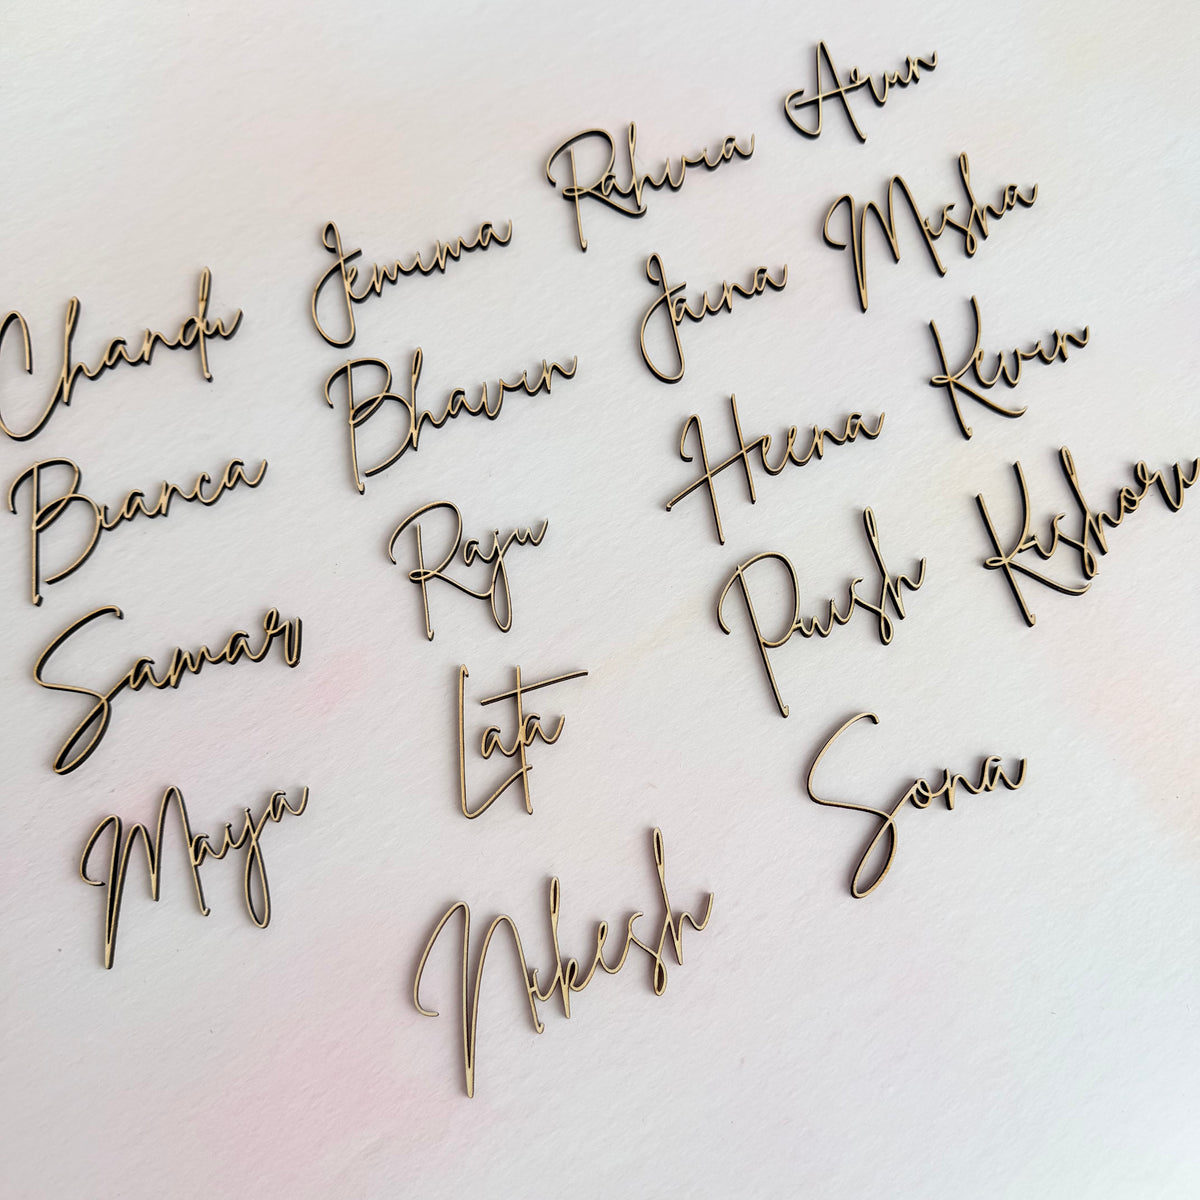 Arun
Rahvia
Misha
Jemima
Jaina
Chandu
Kevin
Bhavin
Heena
Bianca
Kishori
Raju
Puish
Samar
Lata
Sona
Maiya
Nikesh